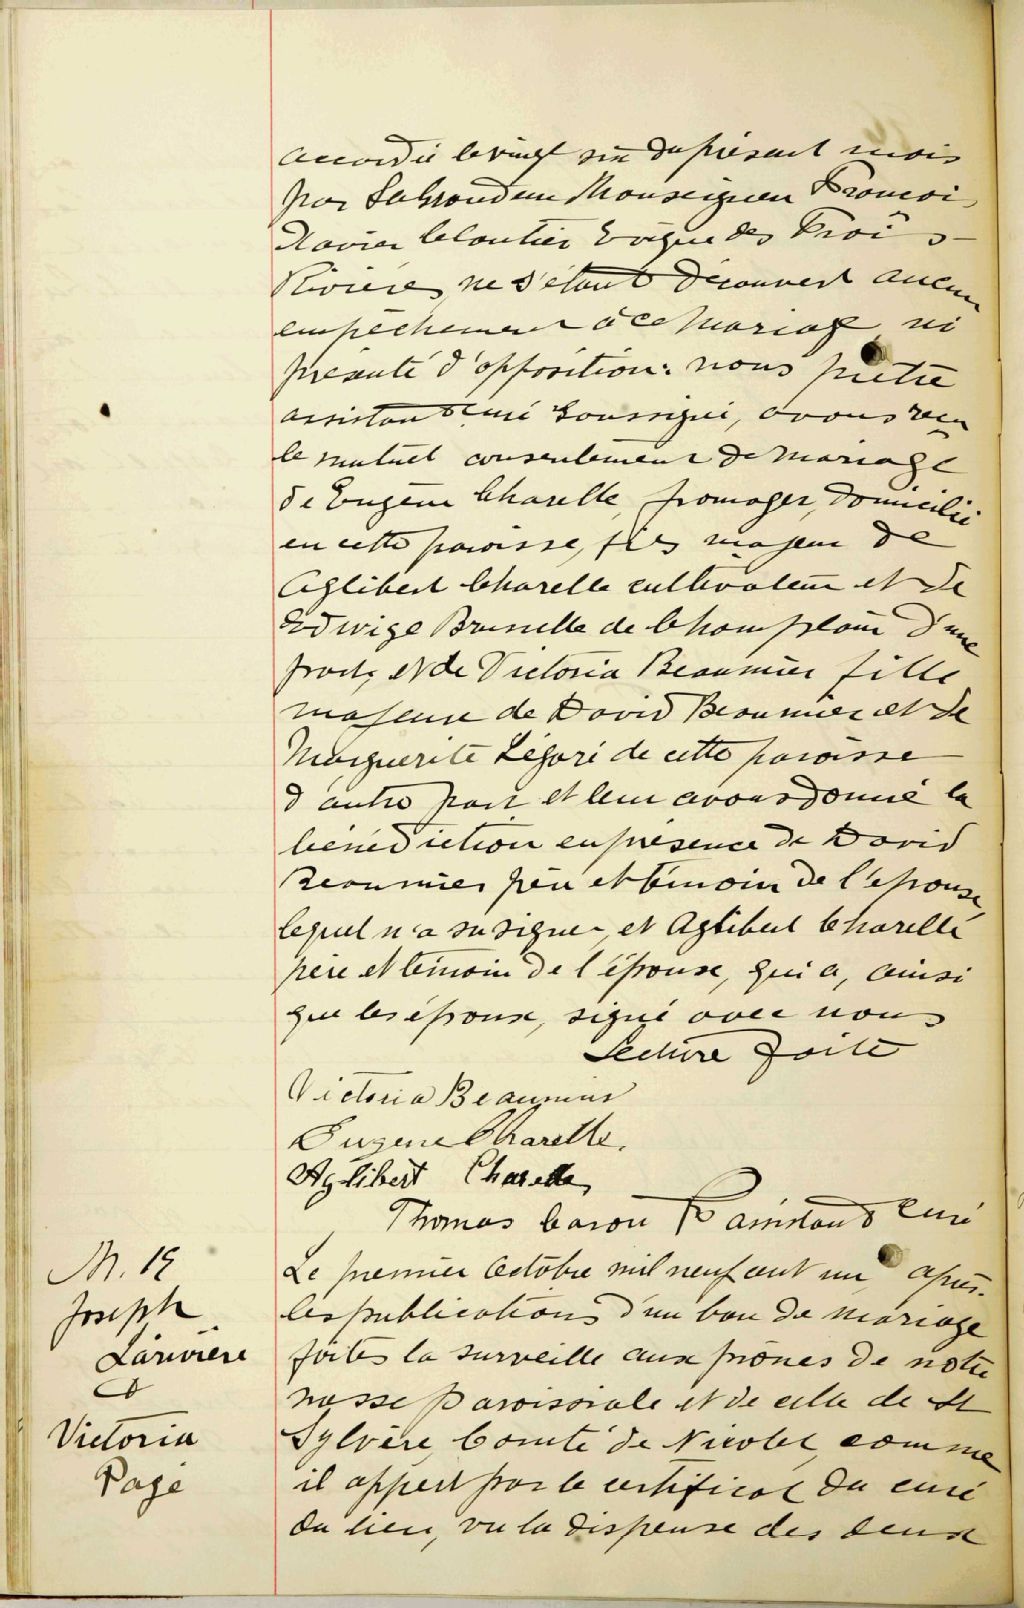 accordée le vingt six du présent mois
par Sa Grandeur Monseigneur François
Xavier Cloutier Evêque des Trois-
Rivières, ne s'étant découvert aucun
empêchement à ce mariage, ni
présenté d'opposition: nous prêtre
assistant curé soussigné, avons reçu
le mutuel consentement de mariage
de Eugène Charette, fromager, domicilié
en cette paroisse, fils majeur de
Aglibert Charette cultivateur et de
Edwige Brunelle de Champlain d'une
part, et de Victoria Beaumier fille
majeure de David Beaumier et de
Marguerite Légaré de cette paroisse
d'autre part et leur avons donné la
bénédiction en présence de David
Beaumier père et témoin de l'épouse,
lequel n'a su signer, et Aglibert Charette
père et témoin de l'épouse, qui a, ainsi
que les époux, signé avec nous
Lecture faite
Victoria Beaumier
Eugène Charette.
Aglibert Charette
Thomas Caron Ptr assistant curé
M. 19
Joseph
Larivière
&
Victoria
Pagé
Le premier Octobre mil neuf cent un, après
les publications d'un ban de mariage
faites la surveille aux prônes de notre
messe paroissiale et de celle de St
Sylvère, Comté de Nicolet, comme
il appert par le certificat du curé
du lieu, vu la dispense des deux